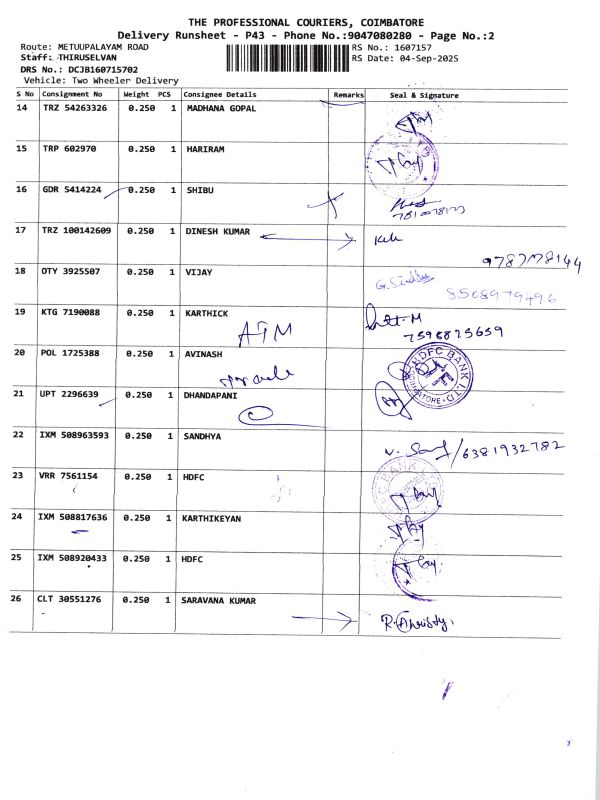 THE PROFESSIONAL COURIERS, COIMBATORE
Delivery Runsheet - P43 - Phone No.:9047080280 - Page No.:2
Route: METUUPALAYAM ROAD
RS No.: 1607157
Staff: THIRUSELVAN
RS Date: 04-Sep-2025
DRS No.: DCJB160715702
Vehicle: Two Wheeler Delivery
S No Consignment No Weight PCS Consignee Details Remarks Seal & Signature
14 TRZ 54263326 0.250 1 MADHANA GOPAL
15 TRP 602970 0.250 1 HARIRAM
16 GDR 5414224 0.250 1 SHIBU
17 TRZ 100142609 0.250 1 DINESH KUMAR
18 OTY 3925507 0.250 1 VIJAY
8508979496
19 KTG 7190088 0.250 1 KARTHICK
ATM
7598825659
20 POL 1725388 0.250 1 AVINASH
HDFC BANK LTD
COIMBATORE
21 UPT 2296639 0.250 1 DHANDAPANI
22 IXM 508963593 0.250 1 SANDHYA
6381932782
23 VRR 7561154 0.250 1 HDFC
24 IXM 508817636 0.250 1 KARTHIKEYAN
25 IXM 508920433 0.250 1 HDFC
26 CLT 30551276 0.250 1 SARAVANA KUMAR
R. Christy.